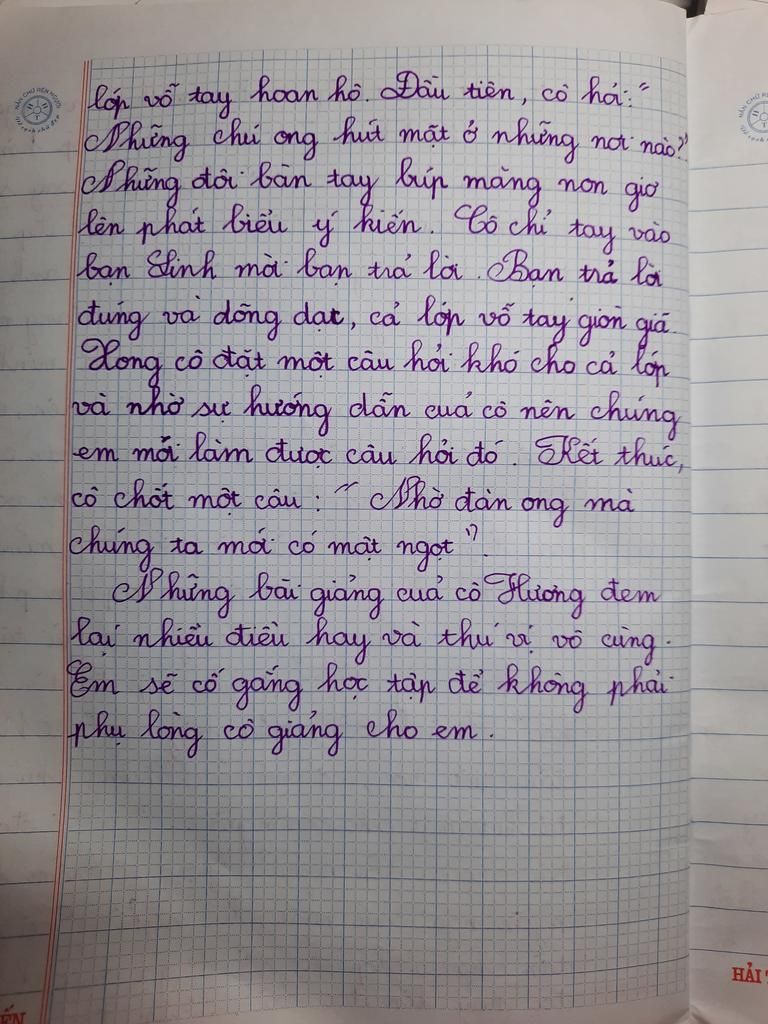 lớp vỗ tay hoan hô. Đầu tiên, cô hỏi: "
Những chú ong hút mật ở những nơi nào?"
Những đôi bàn tay búp măng non giơ
lên phát biểu ý kiến. Cô chỉ tay vào
bạn Linh mời bạn trả lời. Bạn trả lời
đúng và dõng dạc, cả lớp vỗ tay giòn giã.
Xong cô đặt một câu hỏi khó cho cả lớp
và nhờ sự hướng dẫn cuả cô nên chúng
em mới làm được câu hỏi đó. Kết thúc,
cô chốt một câu: " Nhờ đàn ong mà
chúng ta mới có mật ngọt ".
Những bài giảng cuả cô Hương đem
lại nhiều điều hay và thú vị vô cùng.
Em sẽ cố gắng học tập để không phải
phụ lòng cô giảng cho em.
NẮN CHỮ RÈN NGƯỜI
HẢI
ẾN